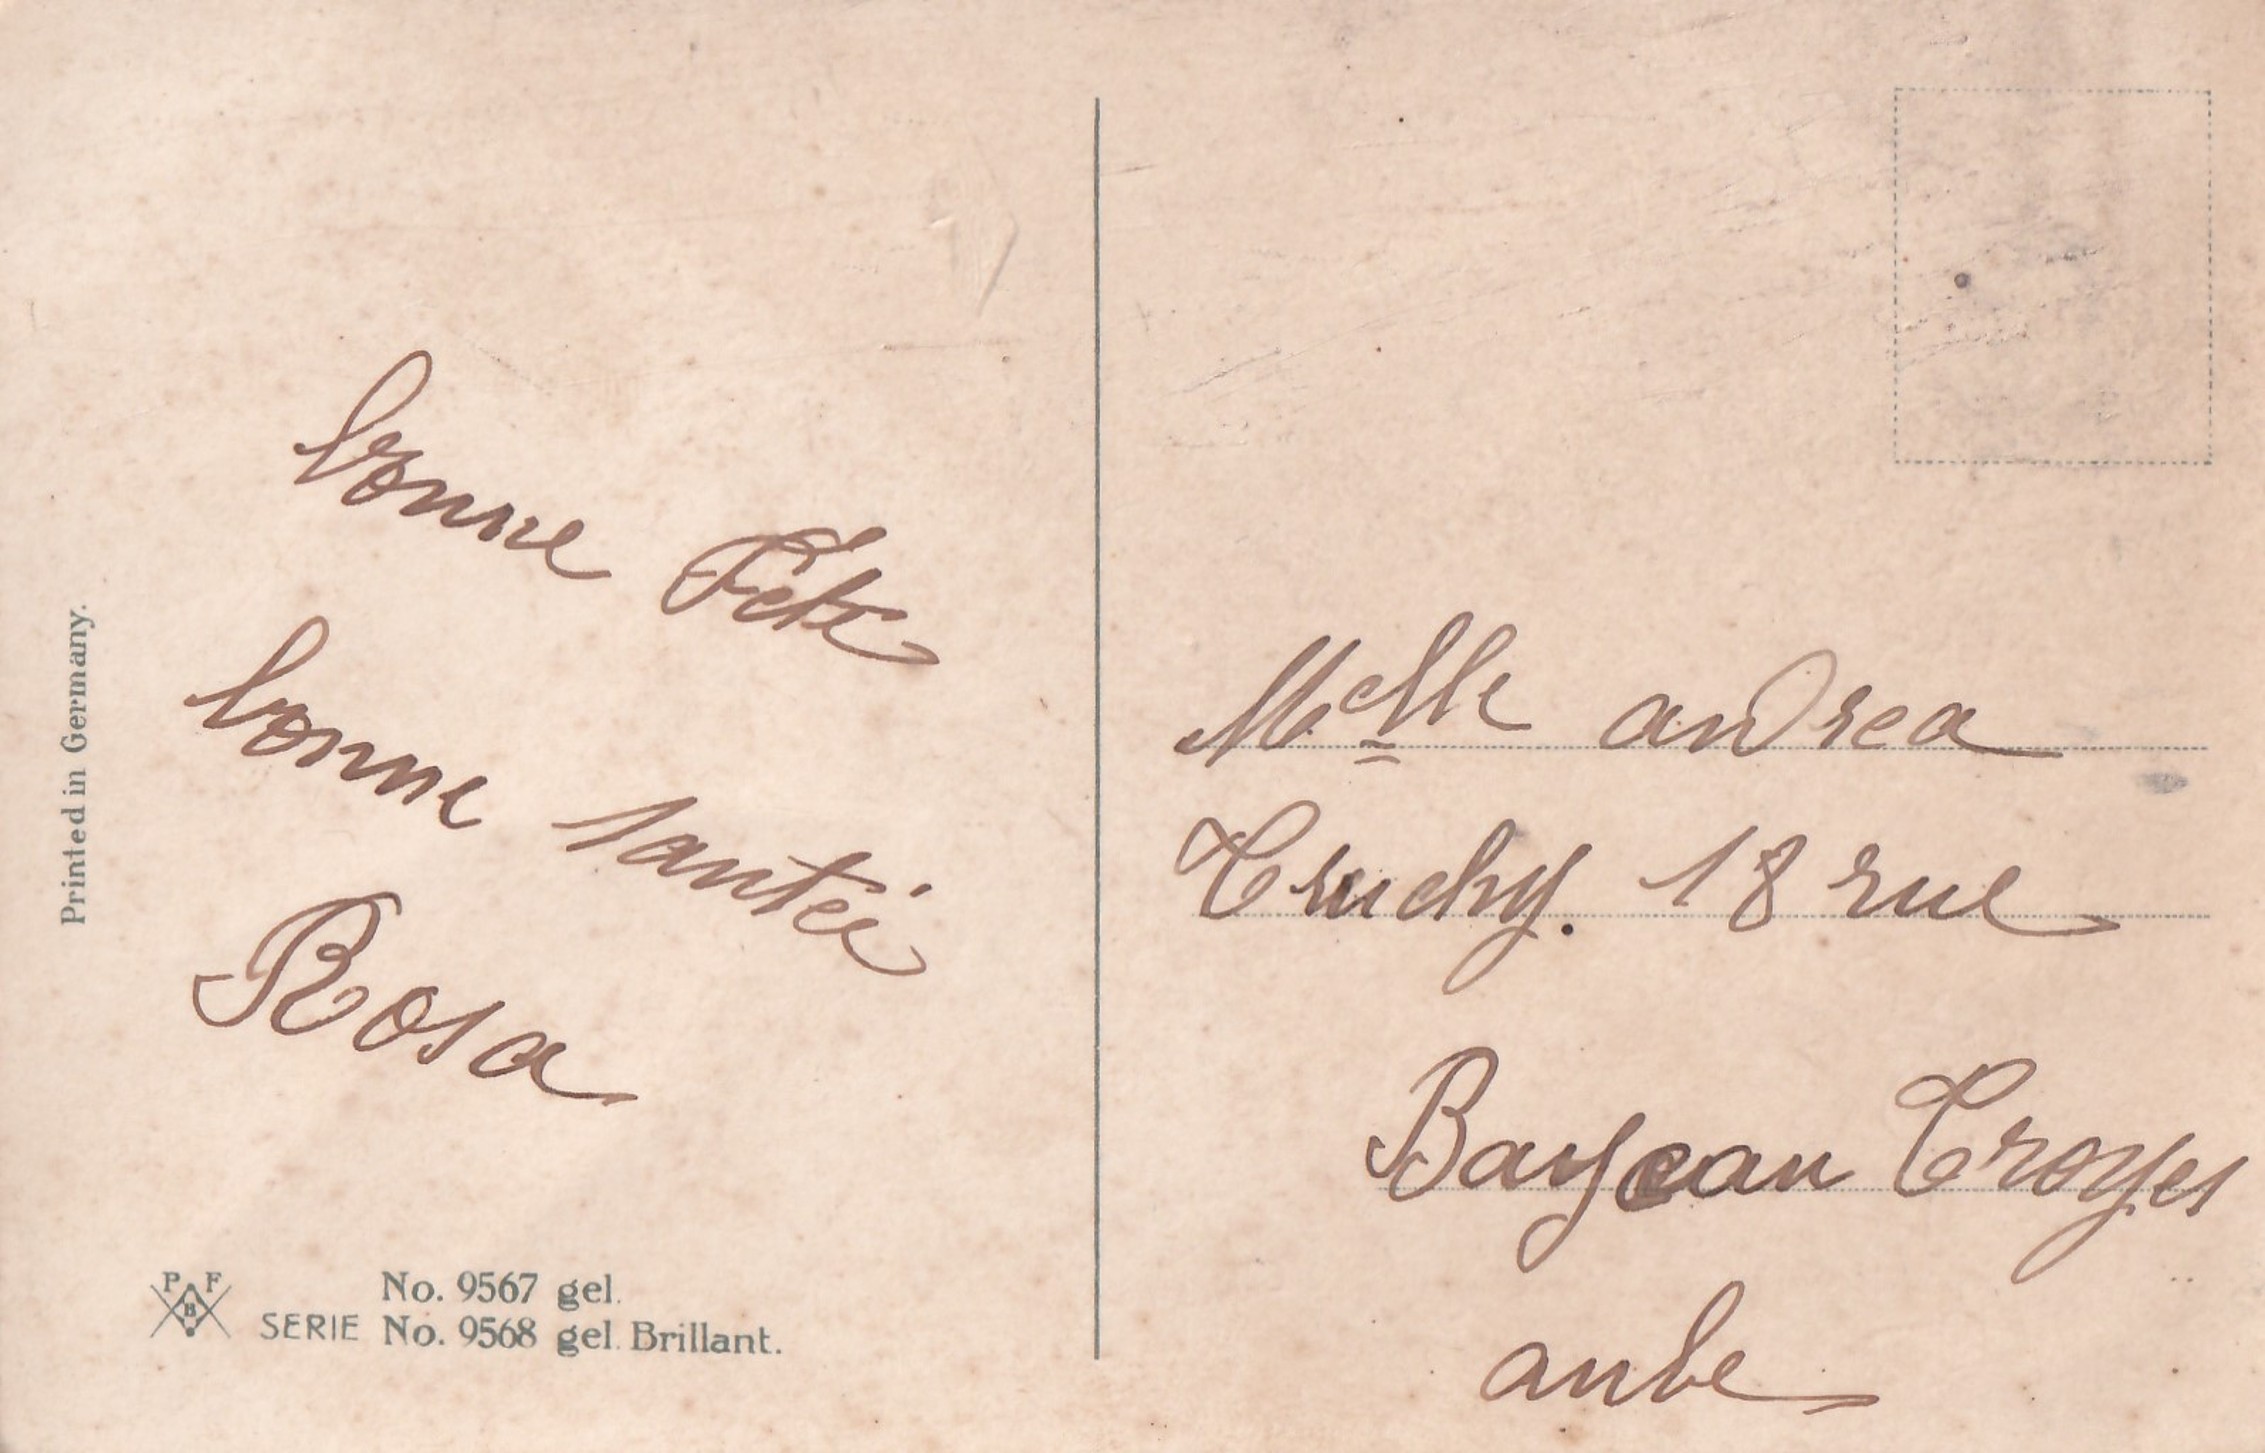 bonne Fête
bonne santée
Rosa
Printed in Germany.
P F
B
No. 9567 gel.
SERIE No. 9568 gel. Brillant.
Melle andrea
Truchy. 18 rue
Troyes
aube